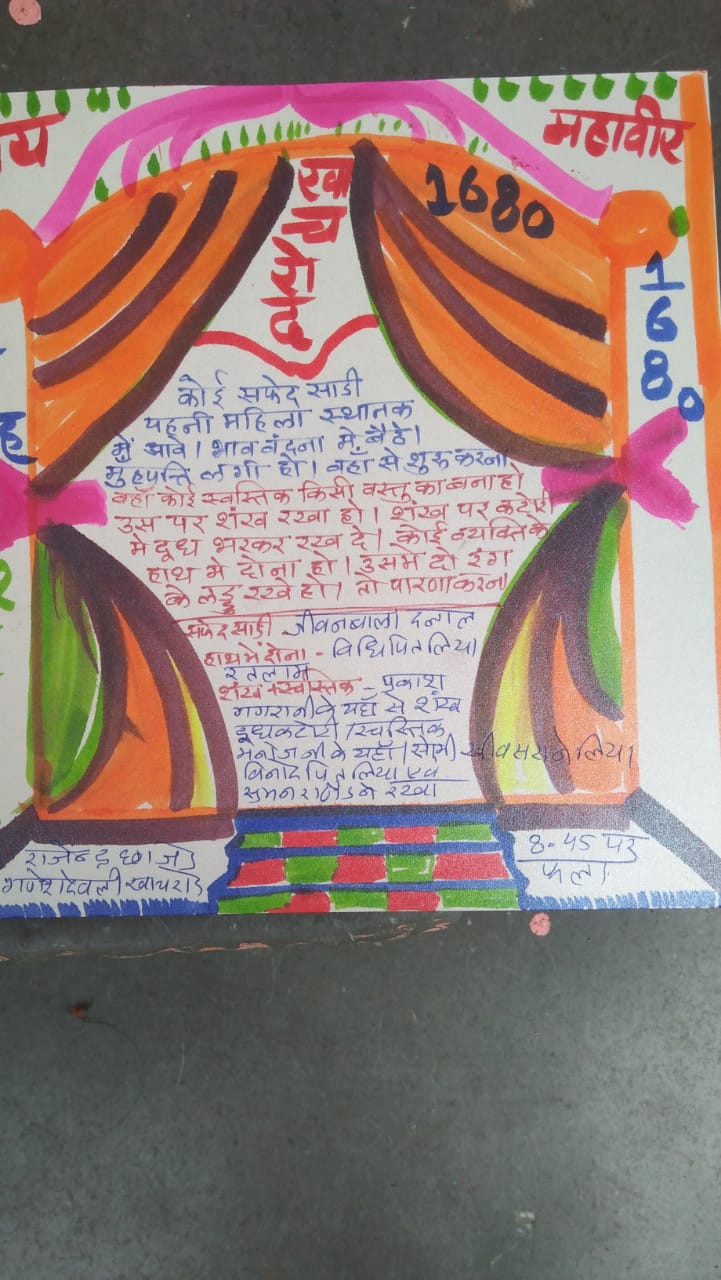 य
महावीर
1680
1680
कोई सफेद साडी
पहनी महिला स्थानक
में आवे। भाव वंदना मे बैठे।
मुहपत्ति लगी हो। वहाँ से शुरू करना
वहाँ कोई स्वस्तिक किसी वस्तु का बना हो
उस पर शंख रखा हो। शंख पर कटोरी
मे दूध भरकर रख दे। कोई व्यक्ति के
हाथ मे दोना हो। उसमे दो रंग
के लड्डू रखे हो। तो पारणा करना
सफेद साडी जीवनबाला दलाल
हाथ में दोना - विधि पितलिया
रतलाम
शंख + स्वस्तिक - प्रकाश
के यहाँ से शंख
दूध कटोरी। स्वस्तिक
मनोज जी के यहाँ।
विनोद पितलिया एवं
सुमन ने रखा
राजेन्द्र छाजेड
गणेश देवली खाचरोद
8.45 पर
फला